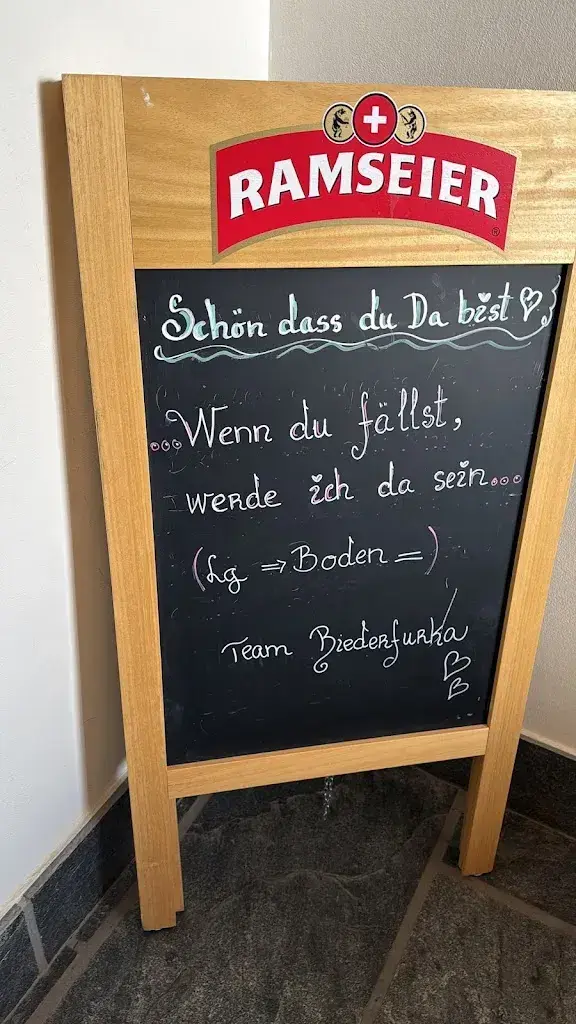 RAMSEIER
®
Schön dass du Da bist ♡
...Wenn du fällst,
werde ich da sein...
(Lg ⇒ Boden =)
Team Biederfurka